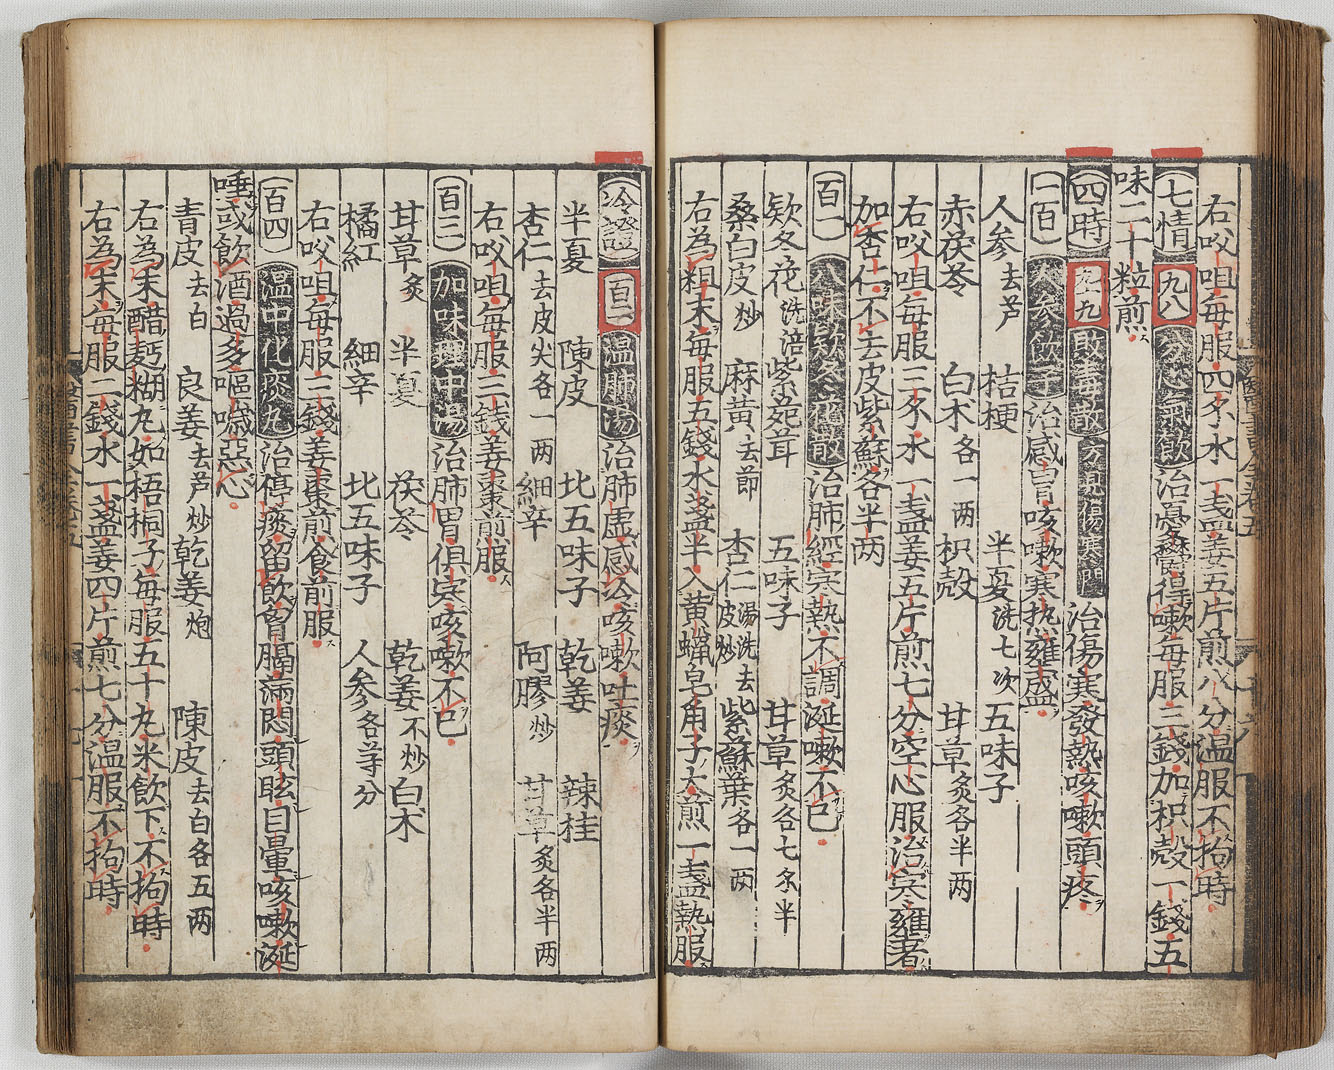 右㕮咀每服四錢水一盞姜五片煎八分温服不拘時
七情 九八 分心氣飲 治憂鬱得嗽每服三錢加枳殼一錢五
味二十粒煎
四時 九九 敗毒散 方見傷寒門 治傷寒發熱咳嗽頭疼
一百 人參飲子 治感冒咳嗽寒热壅盛
人参去芦 桔梗 半夏洗七次 五味子
赤茯苓 白术各一两 枳殼 甘草炙各半两
右㕮咀每服三錢水一盞姜五片煎七分空心服治寒壅者
加杏仁不去皮紫蘇各半两
百一 八味欵冬花散 治肺經寒熱不調涎嗽不已
欵冬花洗焙 紫菀茸 五味子 甘草炙各七錢半
桑白皮炒 麻黄去節 杏仁湯洗去皮炒 紫蘇葉各一两
右為粗末每服五錢水盞半入黄蝋皂角子大煎一盞熱服
冷證 百二 温肺湯 治肺虚感冷咳嗽吐痰
半夏 陳皮 北五味子 乾姜 辣桂
杏仁去皮尖各一两 細辛 阿膠炒 甘草炙各半两
右㕮咀每服三錢姜棗煎服
百三 加味理中湯 治肺胃俱寒咳嗽不已
甘草炙 半夏 茯苓 乾姜不炒 白术
橘紅 細辛 北五味子 人参各等分
右㕮咀每服三錢姜棗煎食前服
百四 温中化痰丸 治停痰留飲胷膈滿悶頭眩目暈咳嗽涎
唾或飲酒過多嘔噦惡心
青皮去白 良姜去芦炒 乾姜炮 陳皮去白各五两
右為末醋麪糊丸如梧桐子每服五十丸米飲下不拘時
右為末每服二錢水一盞姜四片煎七分温服不拘時